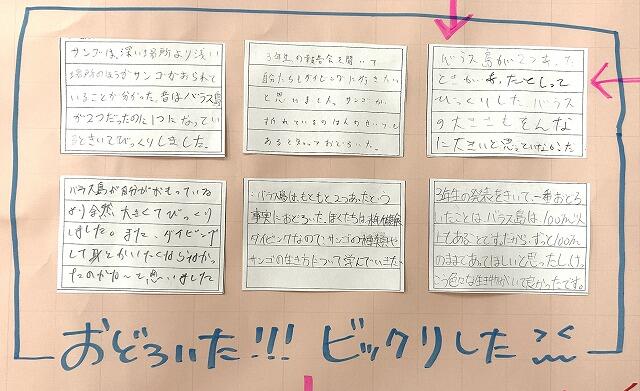 サンゴは、深い場所より浅い
場所のほうがサンゴがおられて
いることが分かった。昔はバラス島
が2つだったのに1つになってい
るときいてびっくりしました。
3年生の報告会を聞いて
自分たちもダイビングに行きたい
と思いました。サンゴが
折れているのはんのせいでも
あると知っておどろいた。
バラス島が2つあった
ときがあったとしって
びっくりした。バラス
の大きさもそんな
に大きいと思っていなかった
バラス島が自分がおもっている
より全然大きくてびっくり
しました。また、ダイビング
して耳とかいたくならなかっ
たのかな〜と思いました
バラス島は、もともと2つあったという
事実におどろいた。ぼくたちは
ダイビングなので、サンゴの種類や
サンゴの生き方について学んでいきたい。
3年生の発表をきいて一番おどろ
いたことはバラス島は、100m以
上もあることです。だから、ずっと100m
のままであってほしいと思ったし、けっ
こう色々な生き物がいて良かったです。
おどろいた!!! ビックリした